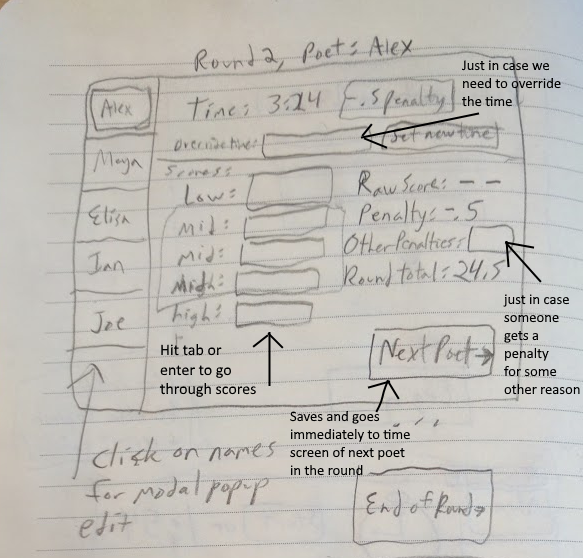 Round 2, Poet: Alex
Just in case we
need to override
the time
Alex
Time: 3:24
-.5 penalty
Override time:
Set new time
Maya
Scores:
Low:
Raw Score: – –
Elisa
Mid:
Penalty: -.5
Mid:
Other Penalties:
Ian
Midh:
Round total: 24.5
Joe
high:
just in case
someone
gets a
penalty
for some
other reason
Hit tab or
enter to go
through scores
Next Poet→
Saves and goes
immediately to time
screen of next poet
in the round
click on names
for modal popup
edit
End of Round→